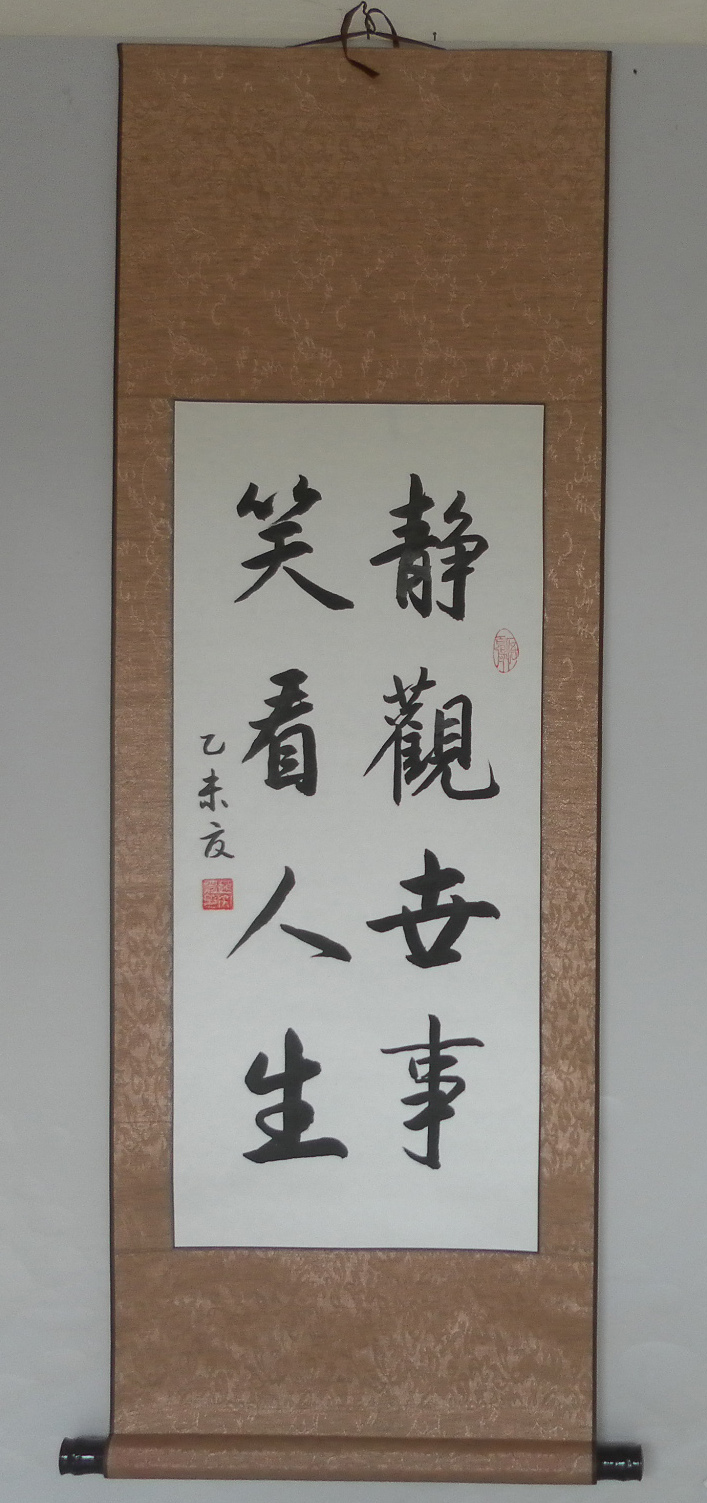 静觀世事
笑看人生
乙未夏